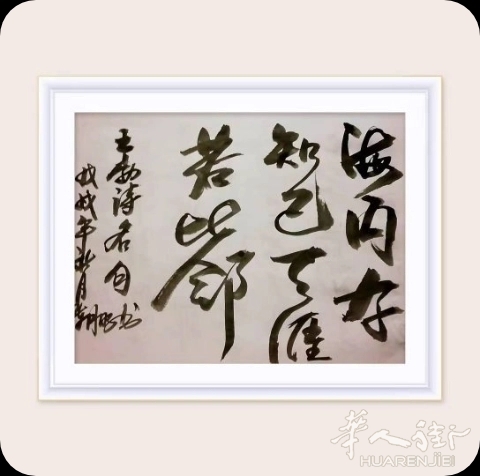 海内存
知己天涯
若比邻
王勃诗名句书
戊戌年秋月
華人街
HUARENJIEI